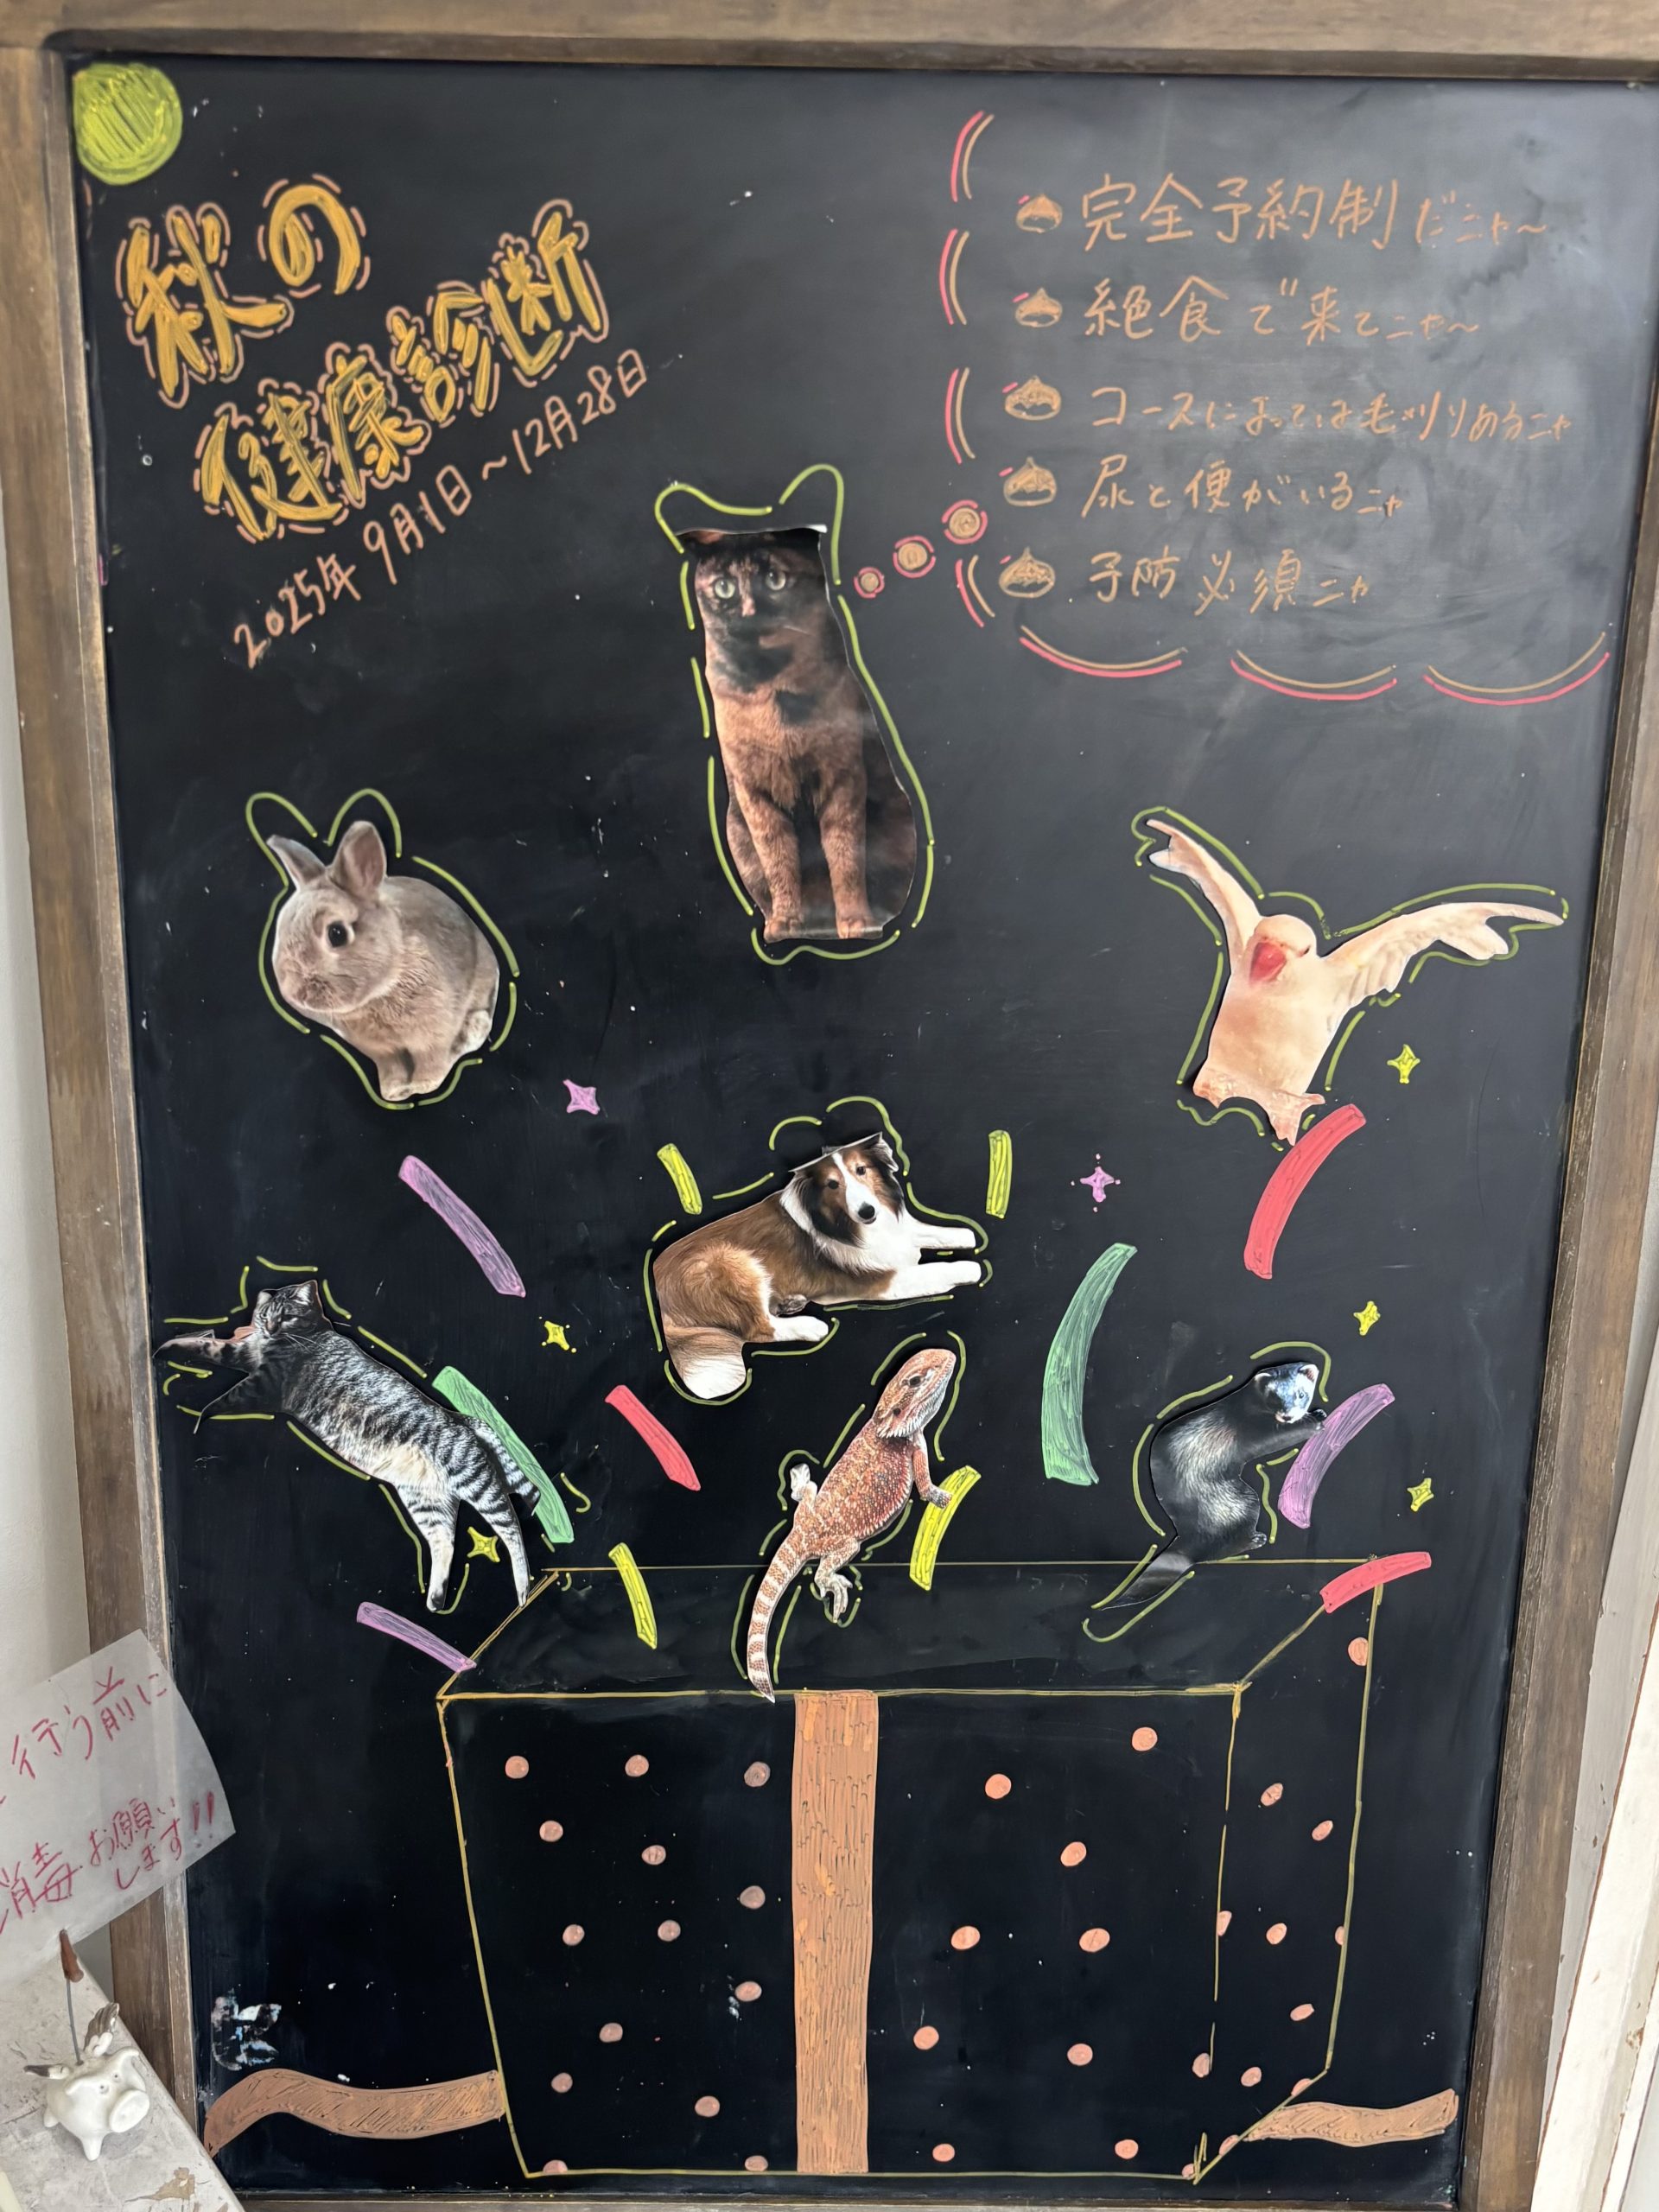 秋の
健康診断
2025年 9月1日～12月28日
完全予約制だニャ～
絶食で来てニャ～
コースによっては毛刈りあるニャ
尿と便がいるニャ
予防必須ニャ
行う前に
消毒お願い
します!!